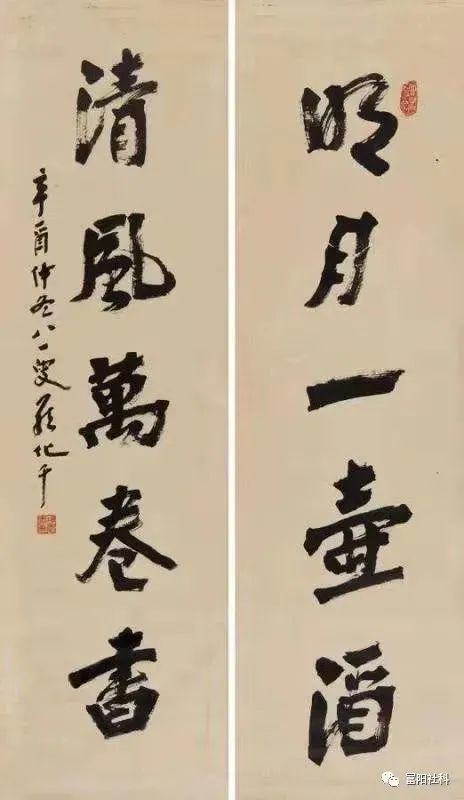 明月一壺酒
清風萬卷書
辛酉仲冬八一叟化千
富阳社科